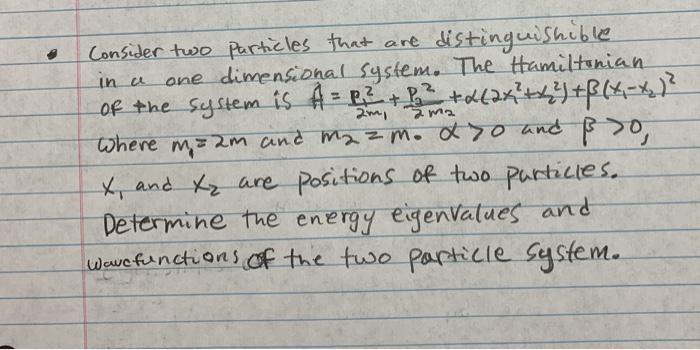 • Consider two particles that are distinguishible
in a one dimensional system. The Hamiltonian
of the system is Ĥ = P₁²/2m₁ + P₂²/2m₂ + α(2x₁²+x₂²)+β(x₁-x₂)²
where m₁=2m and m₂=m. α>0 and β>0,
x₁ and x₂ are positions of two particles.
Determine the energy eigenvalues and
wavefunctions of the two particle system.